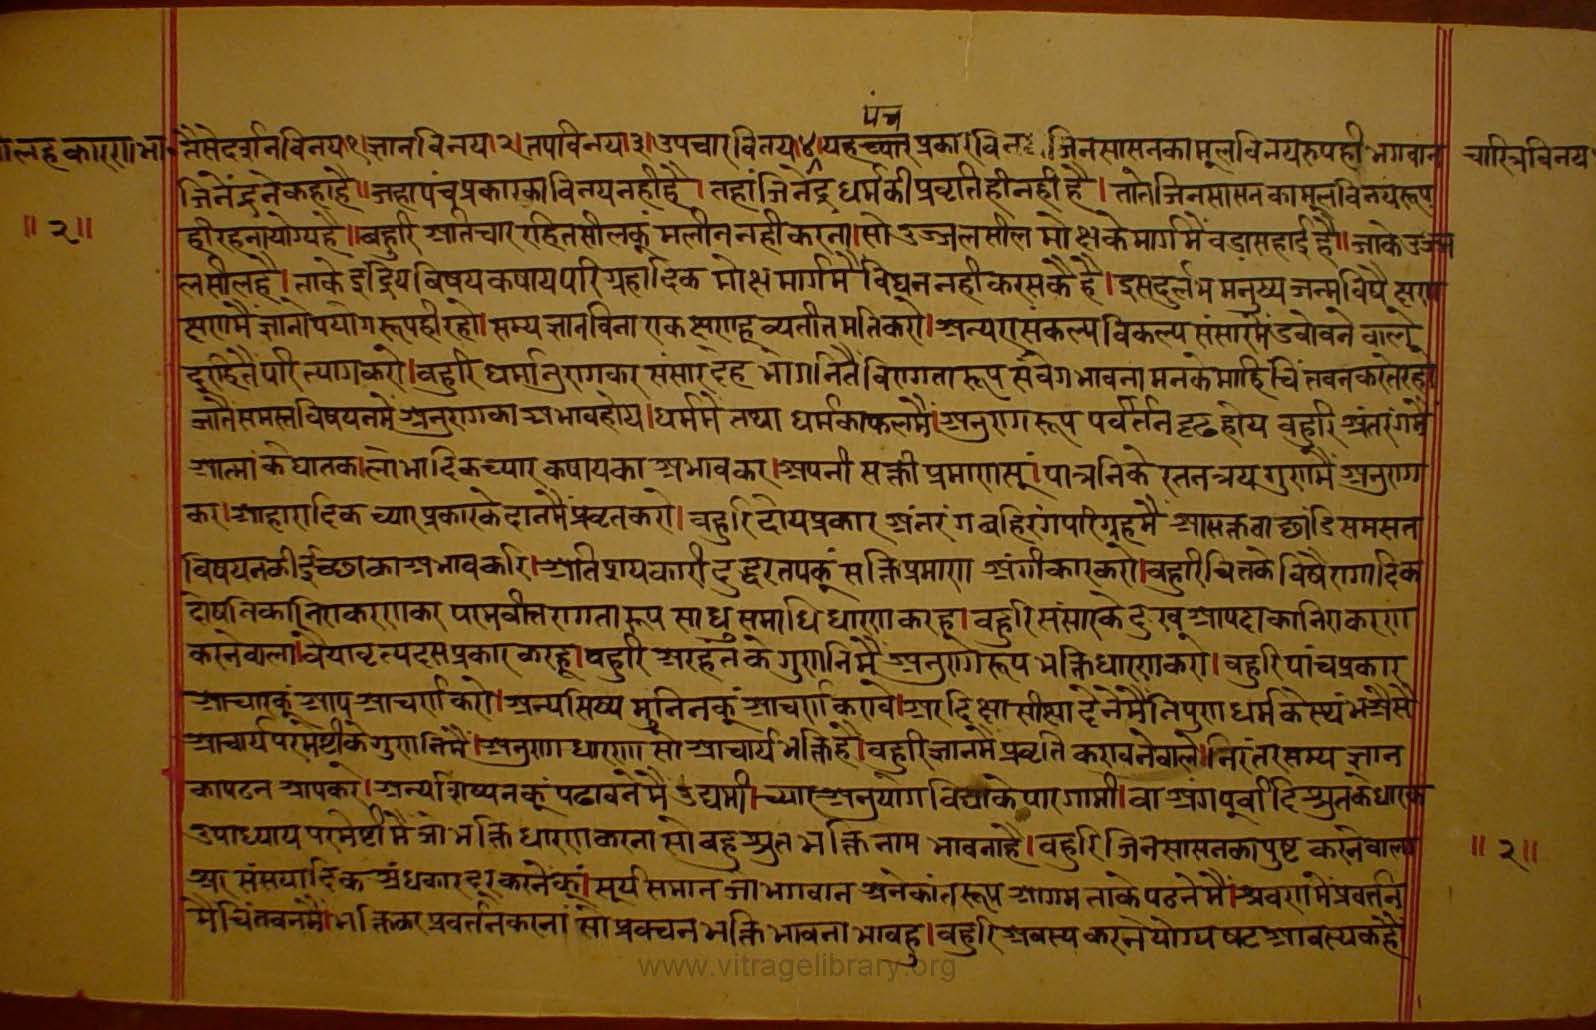 पंच
तैसे दर्शनविनय१। ज्ञानविनय।२। तपविनय।३। उपचारविनय।४। यह च्यार प्रकार विनय। जिनसासनका मूल विनयरुपही भगवान
चारित्रविनय
जिनेंद्रनें कहा है॥ जहा पंचप्रकारका विनय नही है। तहां जिनेंद्र धर्मकी प्रवृति ही नही है। तातें जिनसासनका मूल विनयरूप
ही रहना योग्य है॥ बहुरि अतिचाररहित सीलकूं मलीन नही करना। सो उज्जल सील मोक्षके मार्गमैं बडा सहाई है॥ जाके उज्ज
॥२॥
लसील है। ताके इंद्रियविषयकषायपरिग्रहादिक मोक्षमार्गमैं विघन नही कर सकै है। इस दुर्लभ मनुष्य जन्मविषै क्षण
क्षणमैं ज्ञानोपयोगरूपही रहो। सम्यज्ञान विना एक क्षणहू व्यतीत मति करो। अन्य संकल्प विकल्प संसारमैं डबोवने वाले
दूरहितैं परित्याग करो। बहुरि धर्मानुराग कर संसार देह भोगनितैं विरागतारूप संवेगभावना मनके माहि चिंतवन करते रहो
जातैं समस्तविषयनमें अनुरागका अभाव होय। धर्ममें तथा धर्मका फलमैं। अनुरागरूप पर्वर्तन दृढ होय बहुरि अंतरंगमैं
आत्माके घातक। लोभादिक च्यार कषायका अभाव कर। अपनी सक्ती प्रमाणसूं। पात्रनिके रतनत्रयगुणमैं अनुराग
कर। आहारादिक च्यार प्रकारके दानमैं प्रवृत करो। बहुरि दोय प्रकार अंतरंग बहिरंग परिगृहमैं आसक्तता छांडि समसत
विषयनकी ईच्छाका अभाव करि। अतिशयकारी दुद्धर तपकूं सक्तिप्रमाण अंगीकार करो। बहुरी चितके विषै रागादिक
दोषनिका निराकरण कर परमवीतरागतारूप साधुसमाधि धारण करहू। बहुरि संसारके दुख आपदाका निराकरण
करनेवाला। वैयावृत्य दसप्रकार करहू। बहुरि अरहंतके गुणनिमैं अनुरागरूप भक्ति धारण करो। बहुरि पांचप्रकार
आचारकूं आप आचर्ण करो। अन्य सिष्य मुनिनकूं आचर्ण करावे। अर दिक्षा सीक्षा देनेमैं निपुण धर्मके स्थंभ अैसे
आचार्यपरमेष्टीके गुणनिमैं। अनुराग धारणा सो आचार्यभक्ति है। बहुरि ज्ञानमैं प्रवृति करावनेवाले। निरंतर सम्यज्ञान
का पठन आप करे। अन्य शिष्यनकूं पढावनेमैं उद्यमी। च्यार अनुयोग विद्याके पारगामी। वा अंगपूर्वादि श्रुतके धारक
उपाध्यायपरमेष्टीमैं जो भक्ति धारणा करना सो बहुश्रुतभक्तिनाम भावना है। बहुरि जिनसासनका पुष्ट करनेवाला
॥२॥
अर संसयादिक अंधकार दूर करनेकूं। सूर्य समान जो भगवान अनेकांतरूप आगम ताके पठनेमैं। श्रवणमैं प्रवर्तन
मैं चिंतवनमैं। भक्तिकर प्रवर्तन करनां सो प्रवचनभक्ति भावना भावहु। बहुरि अवस्य करने योग्य षट आवस्यक है
www.vitragelibrary.org